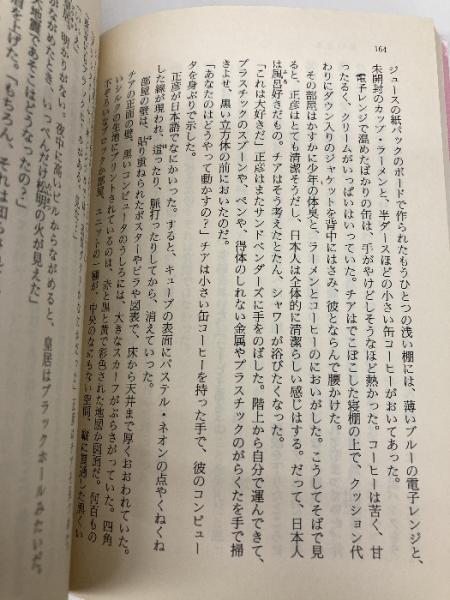 164
ジュースの紙パックのボードで作られたもうひとつの浅い棚には、薄いブルーの電子レンジと、
未開封のカップ・ラーメンと、半ダースほどの小さい缶コーヒーがおいてあった。
電子レンジで温めたばかりの缶は、手がやけどしそうなほど熱かった。コーヒーは苦く、甘
ったるく、クリームがいっぱいはいっていた。チアはでこぼこした寝棚の上で、クッション代
わりにダウン入りのジャケットを背中にはさみ、彼とならんで腰かけた。
その部屋はかすかに少年の体臭と、ラーメンとコーヒーのにおいがした。こうしてそばで見
ると、正彦はとても清潔そうだし、日本人は全体的に清潔らしい感じはする。だって、日本人
は風呂好きだもの。チアはそう考えたとたん、シャワーが浴びたくなった。
「これは大好きだ」正彦はまたサンドベンダーズに手をのばした。階上から自分で運んできて、
プラスチックのスプーンや、ペンや、得体のしれない金属やプラスチックのがらくたを手で掃
きよせ、黒い立方体の前においたのだ。
「あなたのはどうやって動かすの？」チアは小さい缶コーヒーを持った手で、彼のコンピュー
タを身ぶりで示した。
正彦が日本語でなにかいった。すると、キューブの表面にパステル・ネオンの点やくねくね
した線が現われ、這ったり、脈打ったりしてから、消えていった。
部屋の壁は、貼り重ねられたポスターやビラや図表で、床から天井まで厚くおおわれていた。
チアの正面の壁、黒いコンピュータのうしろには、大きなスカーフがぶらさがっていた。四角
いシルクの生地にプリントされているのは、赤と黒と黄で彩色された地図か図面だ。何百もの
不ぞろいなブロックか部屋、ユニットの一種が、中央のなにもない空洞、縦に
からながめると、皇居はブラックホールみたいだ。
松明の火が見えた」